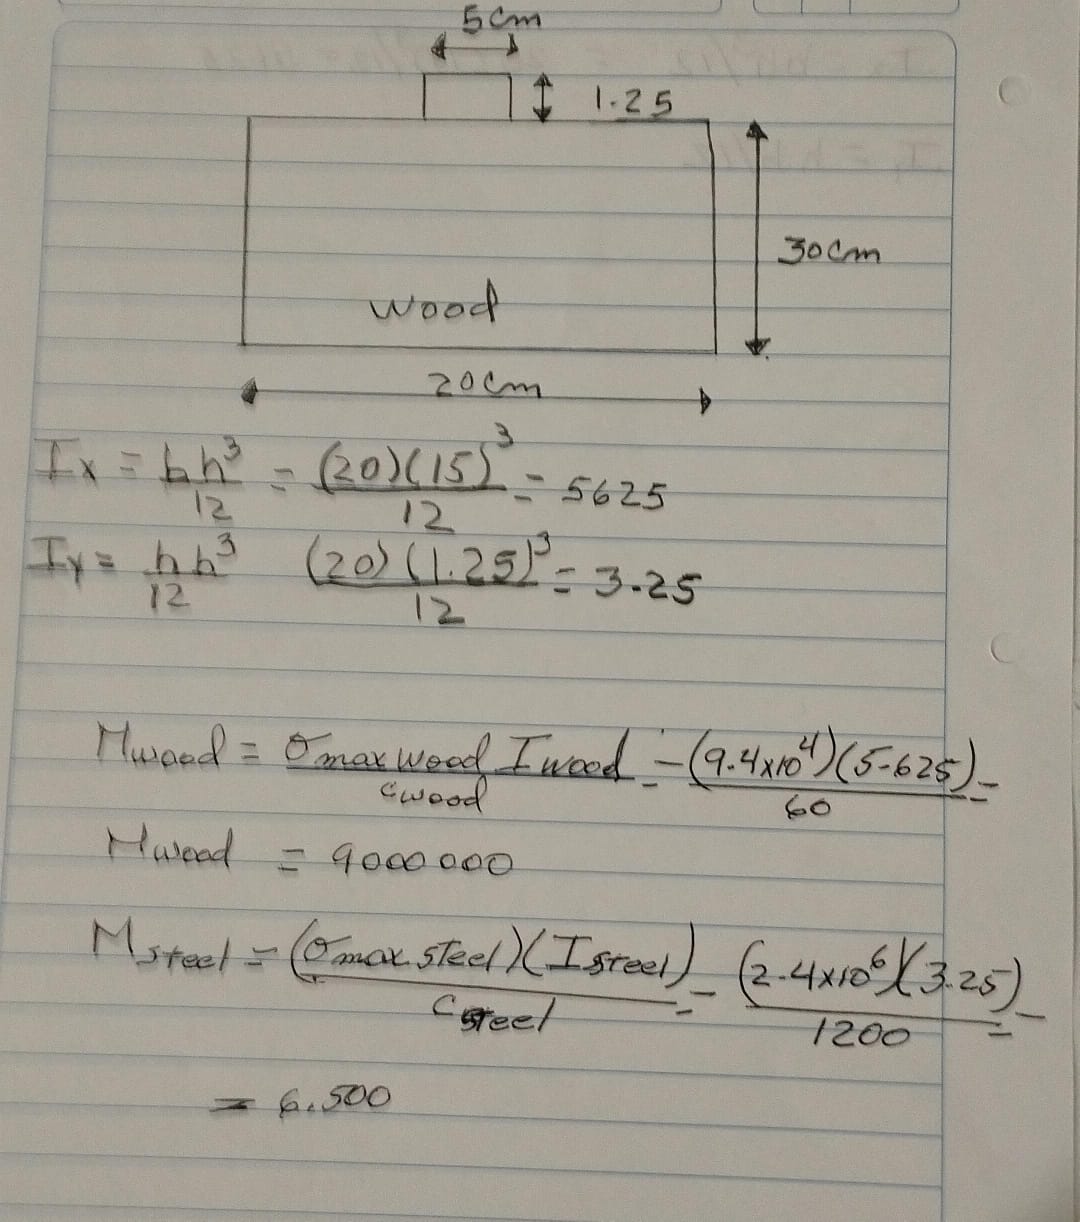 5cm
1.25
30cm
wood
20cm
Ix = bh³/12 = (20)(15)³/12 = 5625
Iy = hh³/12 (20)(1.25)³/12 = 3.25
Mwood = σmax wood Iwood/cwood = (9.4x10⁴)(5-625)/60 =
Mwood = 9000 000
Msteel = (σmax steel)(Isteel)/csteel = (2.4x10⁶)(3.25)/1200 =
= 6.500